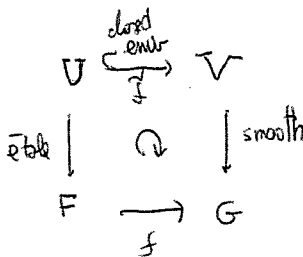 closed
emb
U V
f̃
étale smooth
F G
f